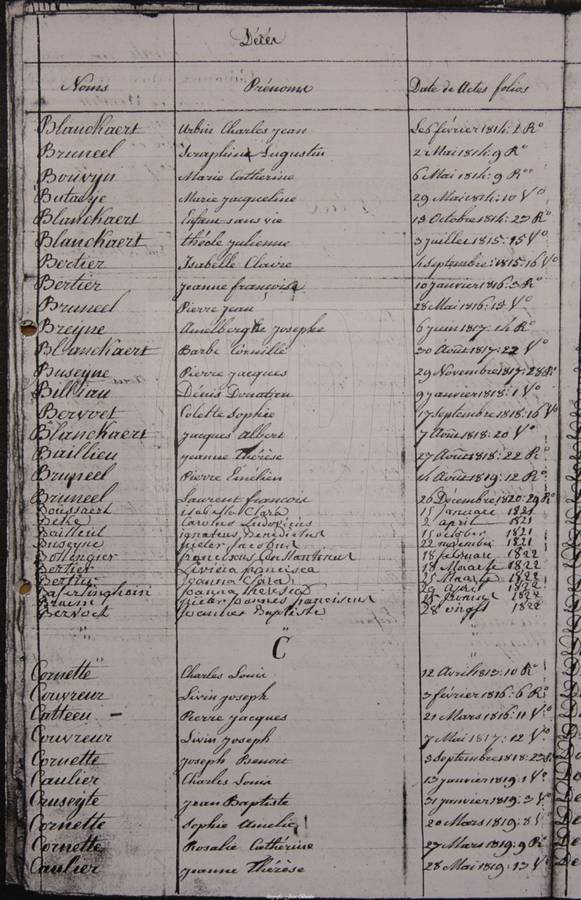 Décès
Noms Prénoms Date de Actes folios
Blanckaert Urbin Charles Jean Le 6 février 1814: 2 R°
Bruneel Seraphin Augustin 2 Mai 1814: 9 R°
Bouvyn Marie Catherine 6 Mai 1814: 9 R°
Butaeye Marie Jacqueline 29 Mai 1814: 10 V°
Blanckaert Enfant sans vie 13 Octobre 1814: 23 R°
Blanckaert thécle julienne 3 juillet 1815: 15 V°
Bertier Isabelle Claire 4 septembre: 1815: 16 V°
Bertier Jeanne françoise 10 janvier 1816: 3 R°
Bruneel Pierre Jean 28 Mai 1816: 13 V°
Breyne Amelberghe Josephe 6 juin 1817: 14 R°
Blanckaert Barbe Cornille 30 Août 1817: 22 V°
Buseyne Pierre Jacques 29 Novembre 1817: 28 R°
Billiau Dénis Donatien 9 janvier 1818: 1 V°
Bervoet Colette Sophie 17 septembre 1818: 16 V°
Blanckaert Jacques Albert 7 Août 1818: 20 V°
Baillieu Jeanne Thérèse 27 Août 1818: 22 R°
Bruneel Pierre Émélien 14 Août 1819: 12 R°
Bruneel Laurent francois 26 Décembre 1820: 29 R°
Boussaert isabella Clara 15 januarie 1821
Bethe Carolus Ludovicus 2 april 1821
Bailleul ignatius Benedictus 15 october 1821
Buseyne pieter Jacobus 22 november 1821
Bollingier franciscus Constantinus 18 februarie 1822
Bertier Livinia francisca 18 Maarte 1822
Bertier Joanna Clara 25 Maarte 1822
Joanna Theresia 29 April 1822
Bruin pieter Joannes franciscus 1822
Bervoet Joannes Baptiste 28 1822
" " "
C
Cornette Charles Louis 12 Avril 1813: 10 R°
Couvreur Livin Joseph 3 février 1816: 6 R°
Catteeu – Pierre Jacques 21 Mars 1816: 11 V°
Couvreur Livin Joseph 7 Mai 1817: 12 V°
Cornette Joseph Benoit 3 Septembre 1818: 23
Caulier Charles Louis 13 janvier 1819: 1 V°
Cruseyte Jean Baptiste 31 janvier 1819: 3 V°
Cornette Sophie Amelie 20 Mars 1819: 8
Cornette Rosalie Catherine 27 Mars 1819: 9 R°
Caulier Jeanne Thérèse 28 Mai 1819: 13 V°